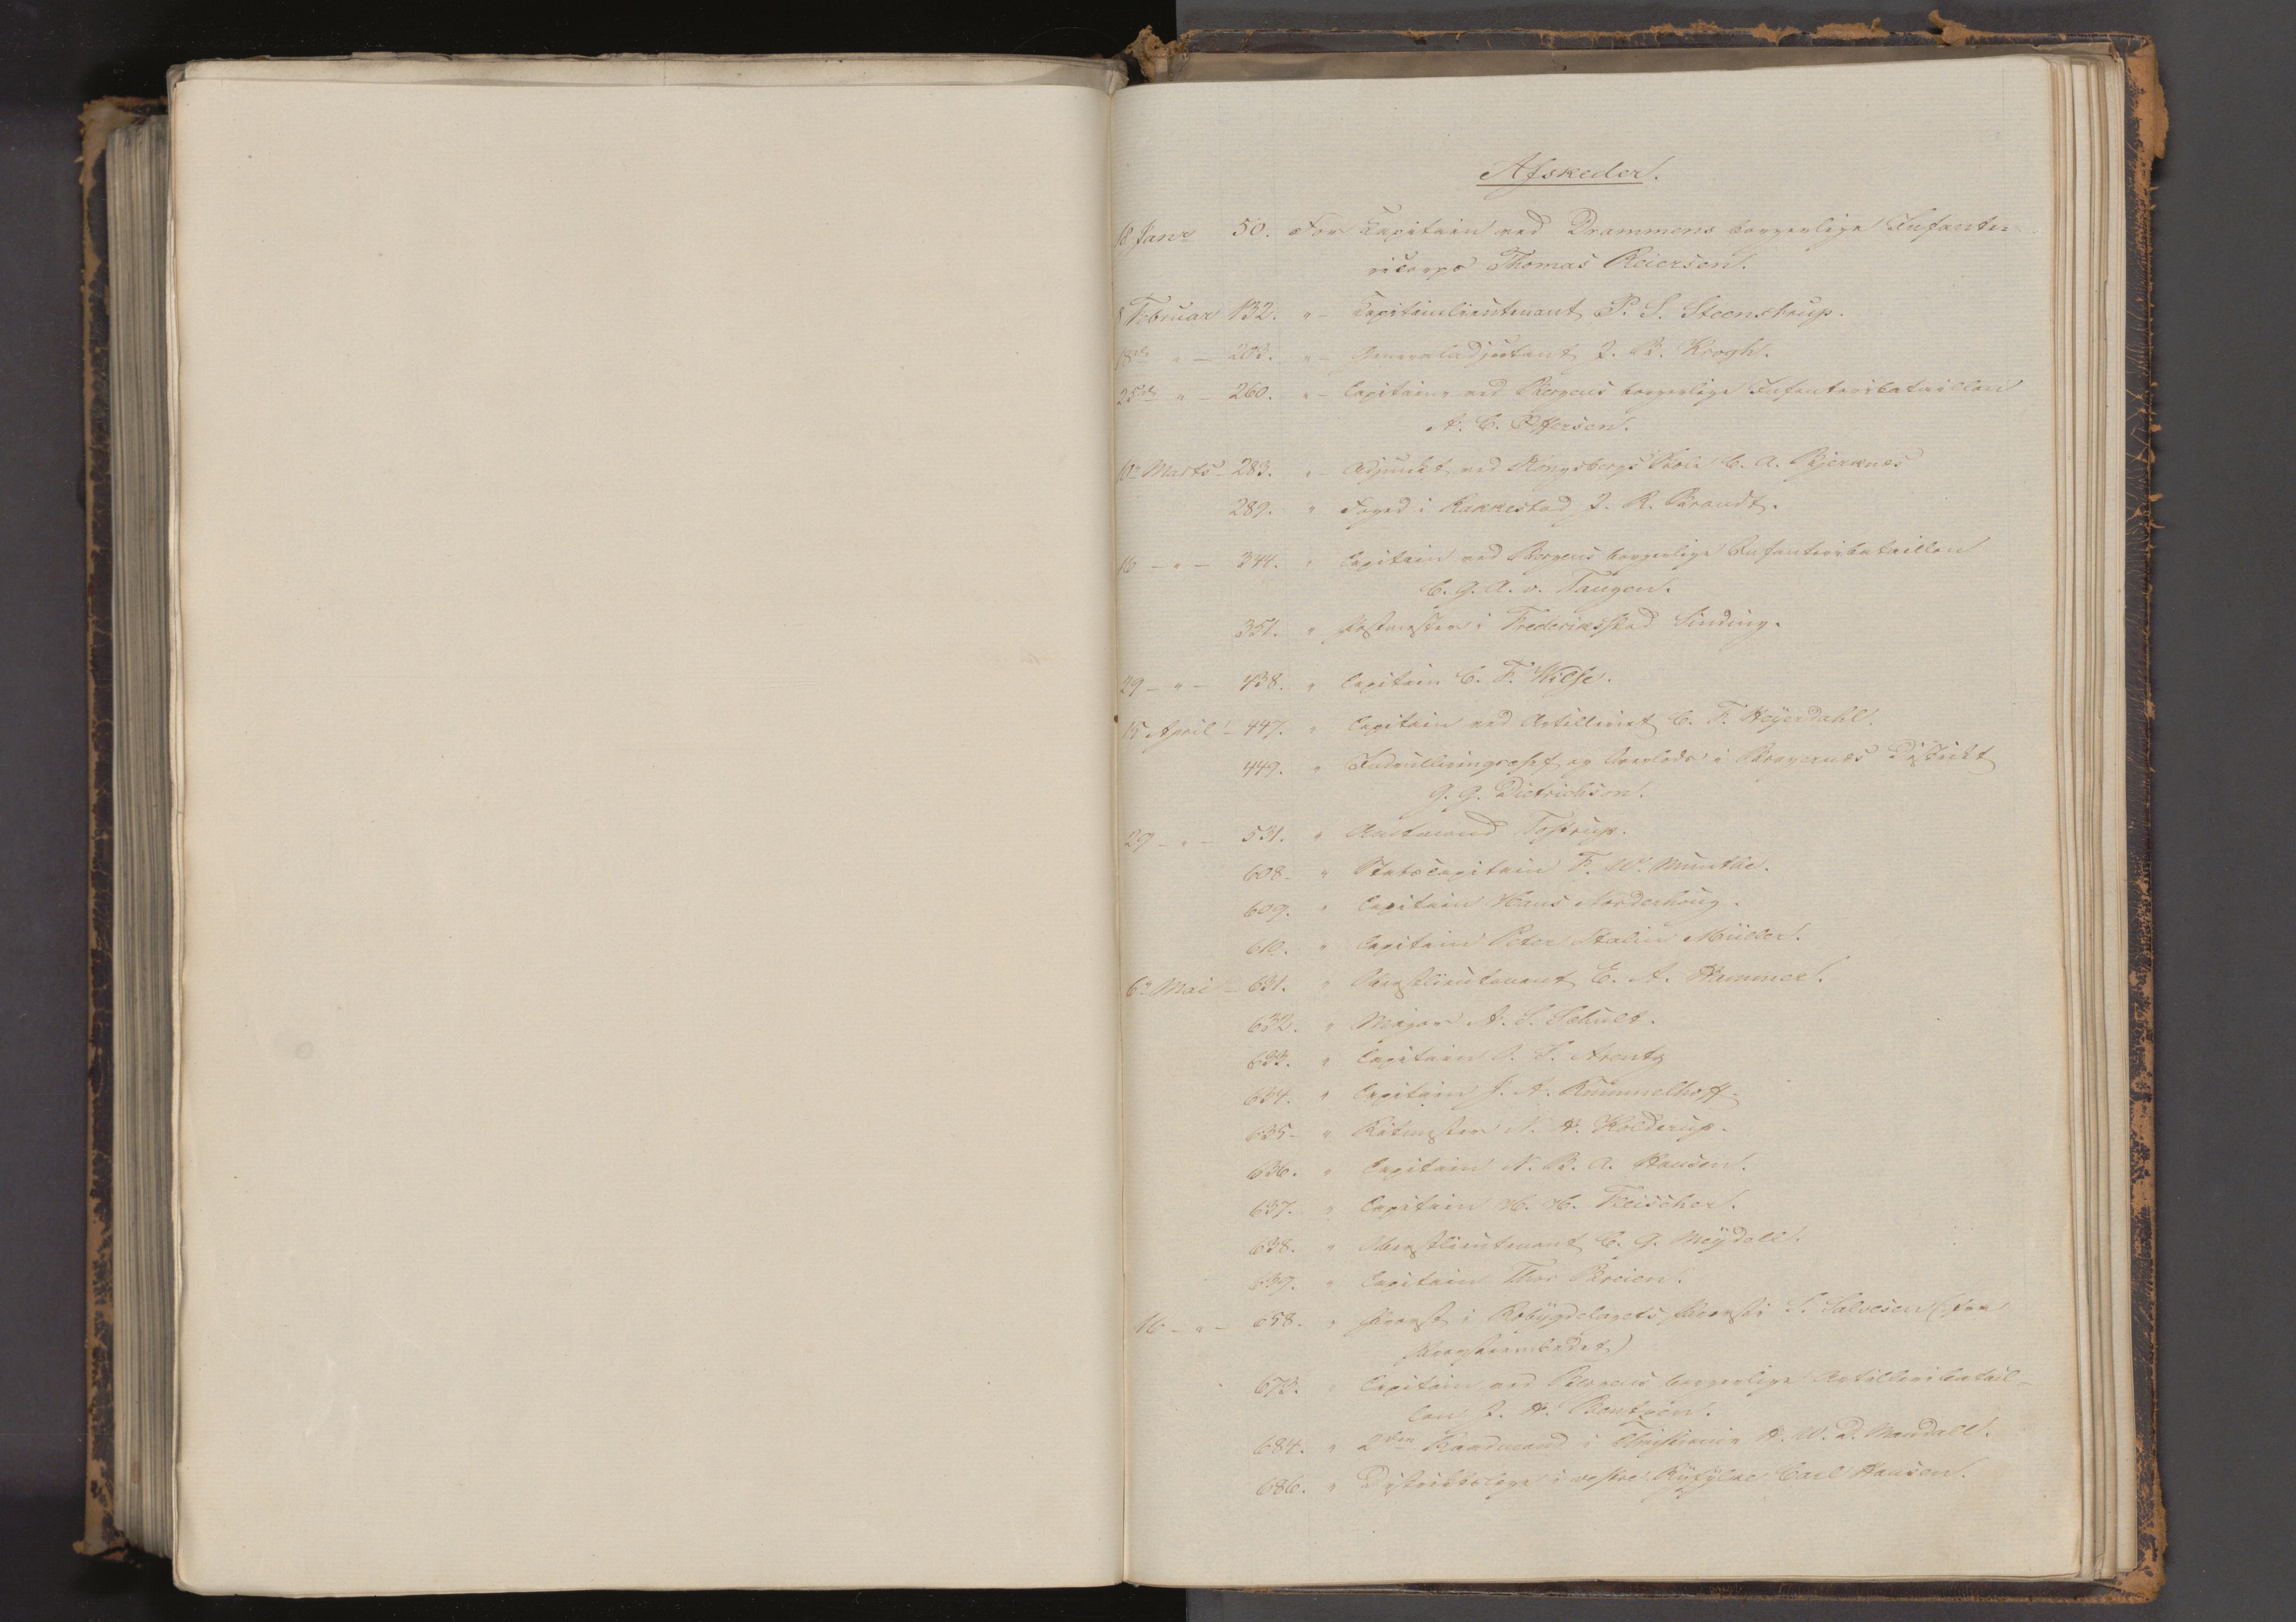 Afskeder.
18 Janr 50. For Kapitain ved Drammens borgerlige Infante-
ricorps Thomas Reiersen.
8 Februar 132. " - Capitainlieutenant P. S. Steenstrup.
18de " - 203. " - Generaladjutant J. B. Krogh.
25de " - 260. " - Capitain ved Bergens borgerlige Infanteribataillon
A. C. Effersen.
10de Marts - 283. " - Adjunkt ved Kongsbergs Skole C. A. Bjerknes
289. " Foged i Rakkestad J. R. Brandt.
16 - " - 344. " Capitain ved Bergens borgerlige Infanteribataillon
C. G. A. v. Tangen.
351. " Postmester i Frederiksstad Sinding.
29 - " - 438. " Capitain C. F. Wilse.
15 April - 447. " Capitain ved Artilleriet C. F. Heyerdahl.
449. " Indrulleringschef og Overlods i Bragernæs Distrikt
G. G. Dietrichson.
29 - " - 531. " Amtmand Tostrup.
608 - " Stabscapitain F. W. Munthe.
609. " Capitain Hans Nordenhoug.
610. " Capitain Peter Stalin Müller.
6te Mai - 631. " Oberstlieutenant E. A. Hammer.
632. " Major A. S. Schult.
633. " Capitain S. Arentz
634. " Capitain J. A. Rummelhoff.
635 - " Ritmester N. A. Kolderup.
636. " Capitain N. B. A. Hansen.
637. " Capitain H. H. Fleischer.
638. " Oberstlieutenant C. G. Meydell.
639. " Capitain Thor Breien.
16 - " - 658. " Provst i Robygdelagets Provsti S. Salvesen (fra
Provsteembedet)
673. " Capitain ved Bergens borgerlige Artilleribatail-
lon J. A. Bentzon.
684. " 2den Raadmand i Christiania A. W. D. Mandall.
686. " Distriktslæge i vestre Ryfylke Carl Hansen.